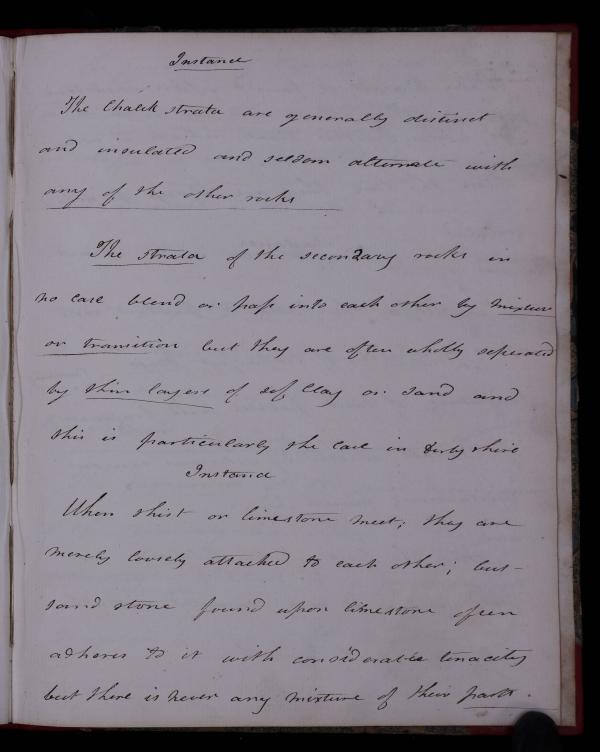 Instance
The Chalk strata are generally distinct
and insulated and seldom alternate with
any of the other rocks
The strata of the secondary rocks in
no case blend or pass into each other by mixture
or transition but they are often wholly seperated
by thin layers of soft Clay or sand and
this is particularly the case in Derbyshire
Instance
When shist or limestone meet; they are
merely loosely attached to each other; but
sand stone found upon limestone often
adheres to it with considerable tenacity
but there is never any mixture of their parts.